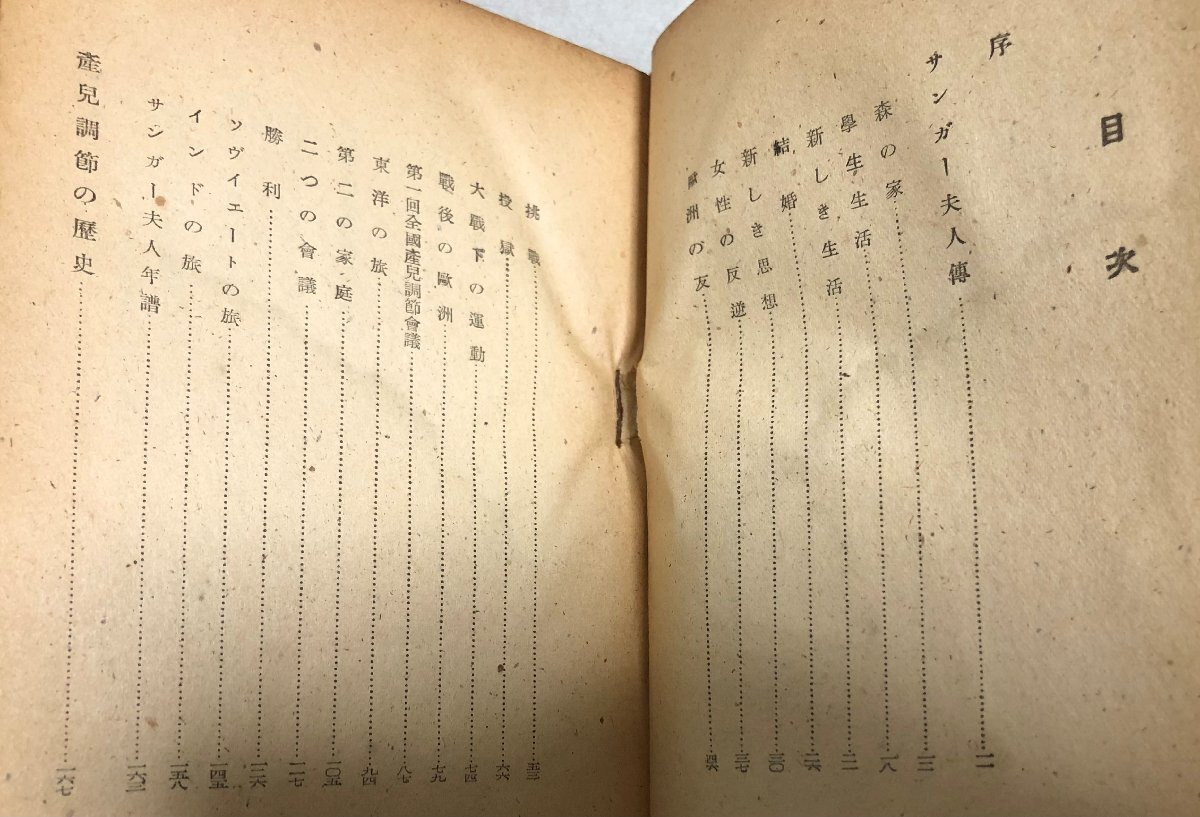 目次
序
サンガー夫人傳……一一
森の家……
學生生活……一八
新しき生活……
結婚……二六
新しき思想……三〇
女性の反逆……三七
歐洲の友……四六
挑戰……五三
授獄……六六
大戰下の運動……七四
戰後の歐洲……七九
第一回全國產兒調節會議……八七
東洋の旅……九四
第二の家庭……一〇五
二つの會議……一一七
勝利……
ソヴイエートの旅……一四五
インドの旅……一五八
サンガー夫人年譜……一六三
產兒調節の歷史……一六七